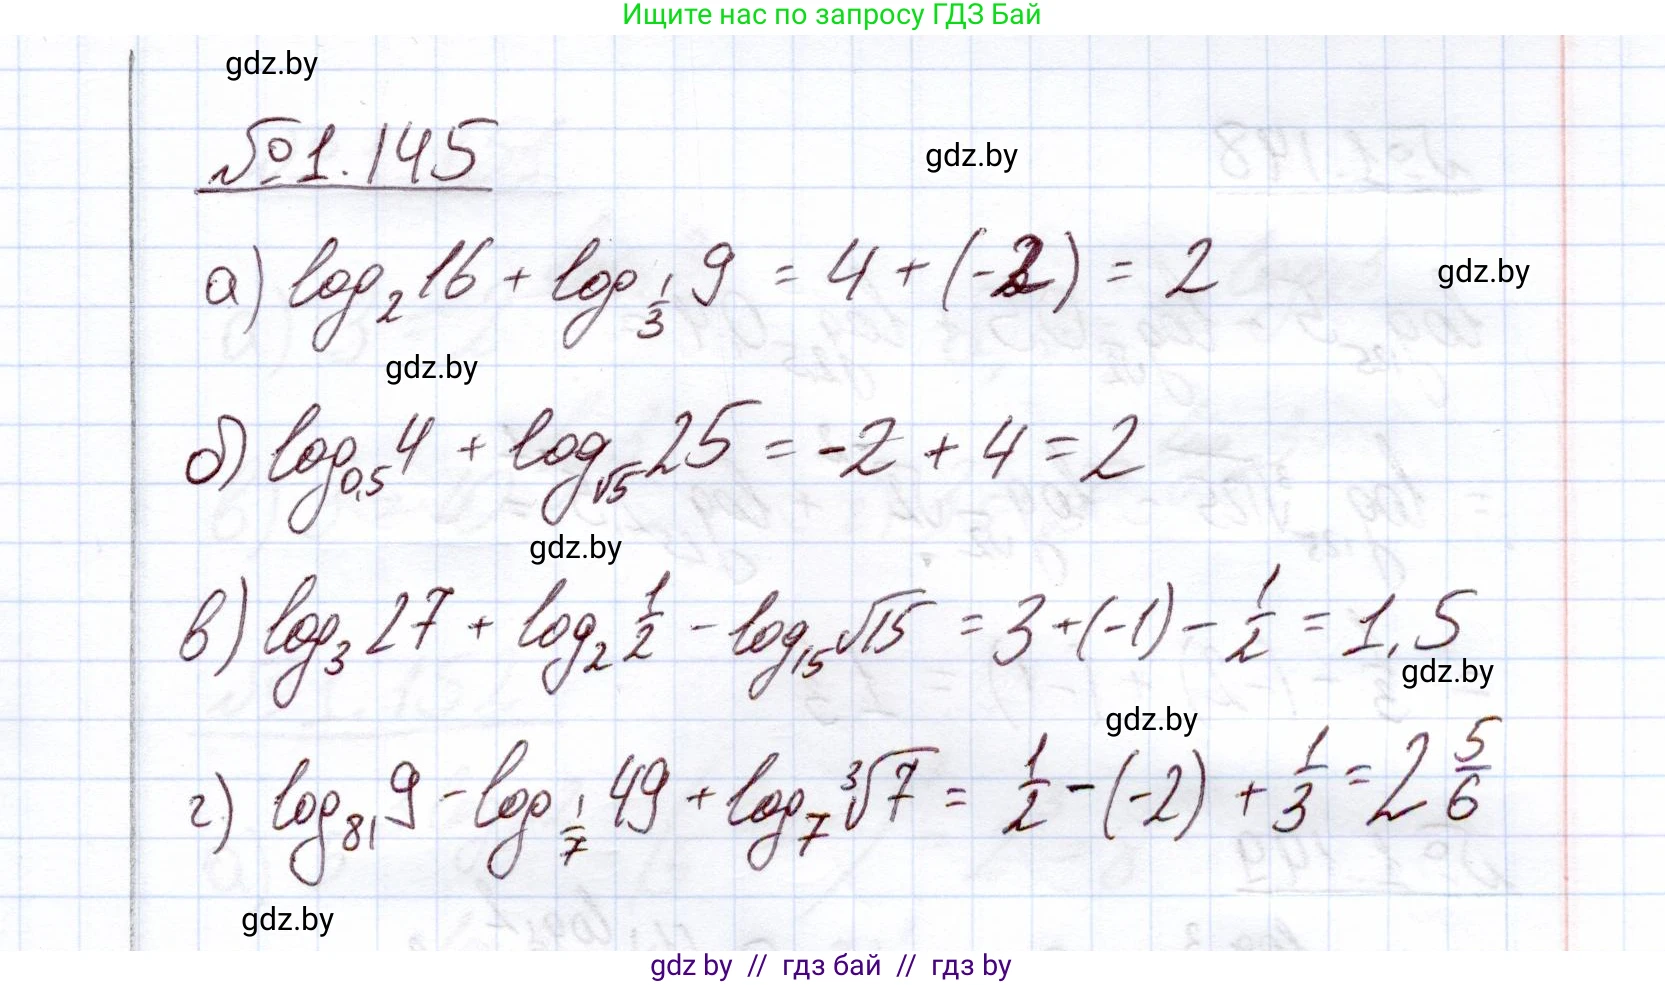 Ищите нас по запросу ГДЗ Бай
gdz.by
№1.145
gdz.by
а) log₂16 + log_{1/3} 9 = 4 + (-2) = 2
gdz.by
gdz.by
б) log_{0,5} 4 + log_{√5} 25 = -2 + 4 = 2
gdz.by
в) log₃ 27 + log₂ 1/2 - log₁₅ √15 = 3 + (-1) - 1/2 = 1,5
gdz.by
gdz.by
г) log₈₁ 9 - log_{1/7} 49 + log₇ ³√7 = 1/2 - (-2) + 1/3 = 2 5/6
gdz.by
gdz by // гдз бай // гдз by